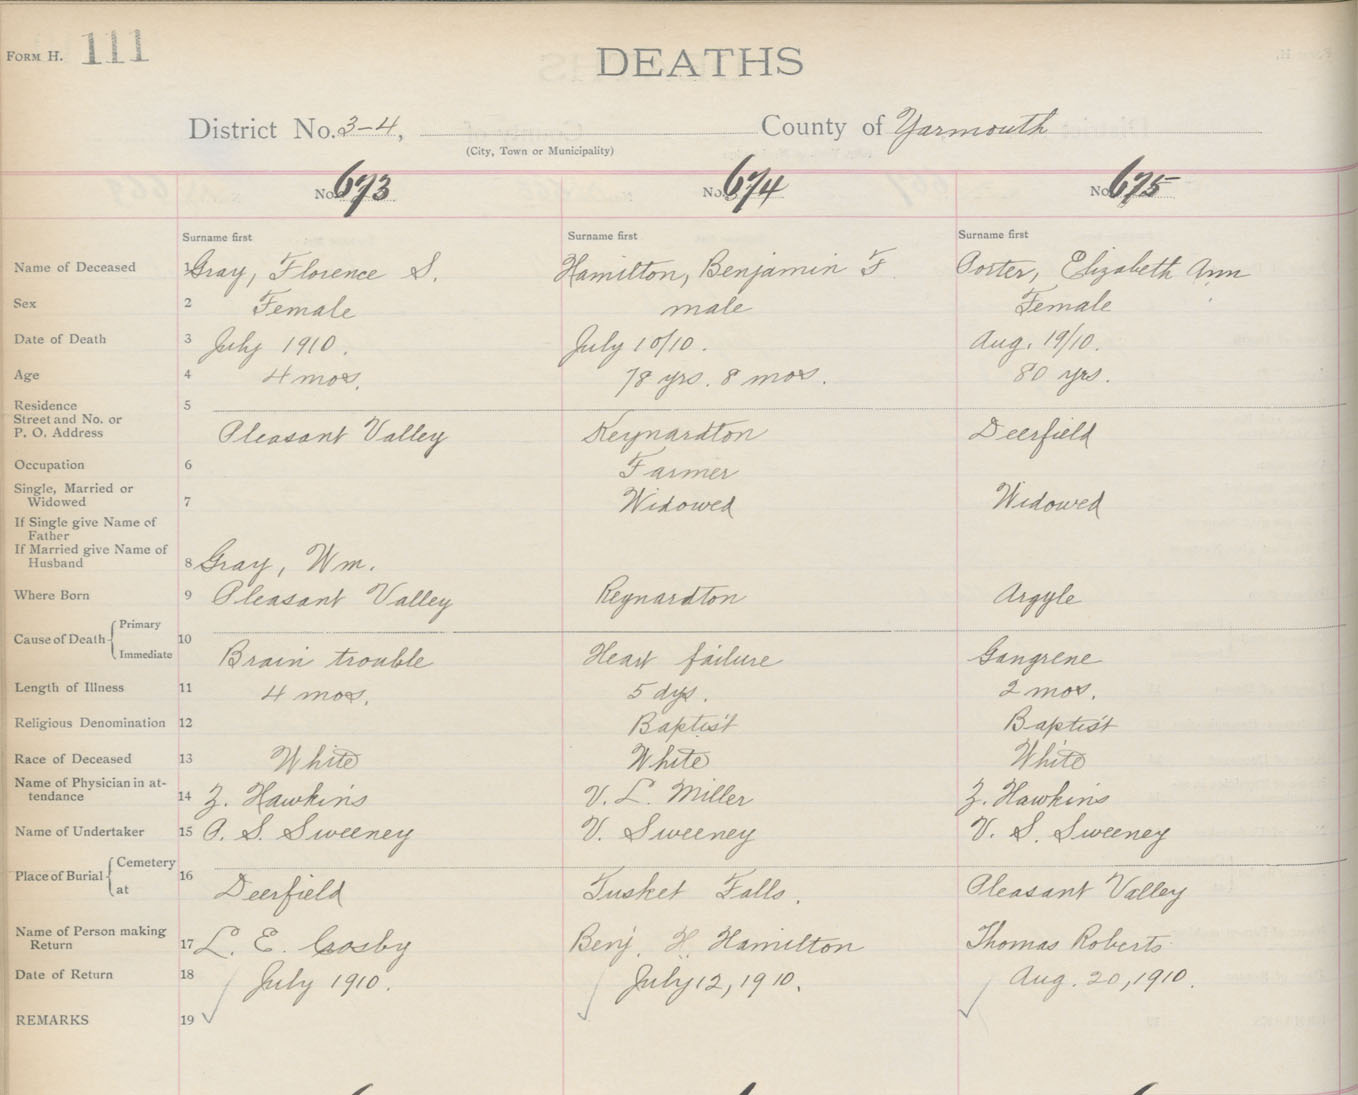 FORM H. 111
DEATHS
District No. 3-4, County of Yarmouth
(City, Town or Municipality)
No. 673 No. 674 No. 675
Surname first Surname first Surname first
Name of Deceased 1 Gray, Florence S. Hamilton, Benjamin F Porter, Elizabeth Ann
Sex 2 Female male Female
Date of Death 3 July 1910. July 10/10. Aug. 19/10.
Age 4 4 mos. 78 yrs. 8 mos. 80 yrs.
Residence 5
Street and No. or
P. O. Address Pleasant Valley Reynardton Deerfield
Occupation 6 Farmer
Single, Married or
Widowed 7 Widowed Widowed
If Single give Name of
Father
If Married give Name of
Husband 8 Gray, Wm.
Where Born 9 Pleasant Valley Reynardton Argyle
Cause of Death Primary 10
Immediate Brain trouble Heart failure Gangrene
Length of Illness 11 4 mos. 5 dys. 2 mos.
Religious Denomination 12 Baptist Baptist
Race of Deceased 13 White White White
Name of Physician in at-
tendance 14 Z. Hawkins V. L. Miller Z. Hawkins
Name of Undertaker 15 P. S. Sweeney V. Sweeney V. S. Sweeney
Place of Burial Cemetery 16
at Deerfield Tusket Falls. Pleasant Valley
Name of Person making
Return 17 L. E. Crosby Benj. H. Hamilton Thomas Roberts
Date of Return 18 July 1910. July 12, 1910. Aug. 20, 1910.
REMARKS 19